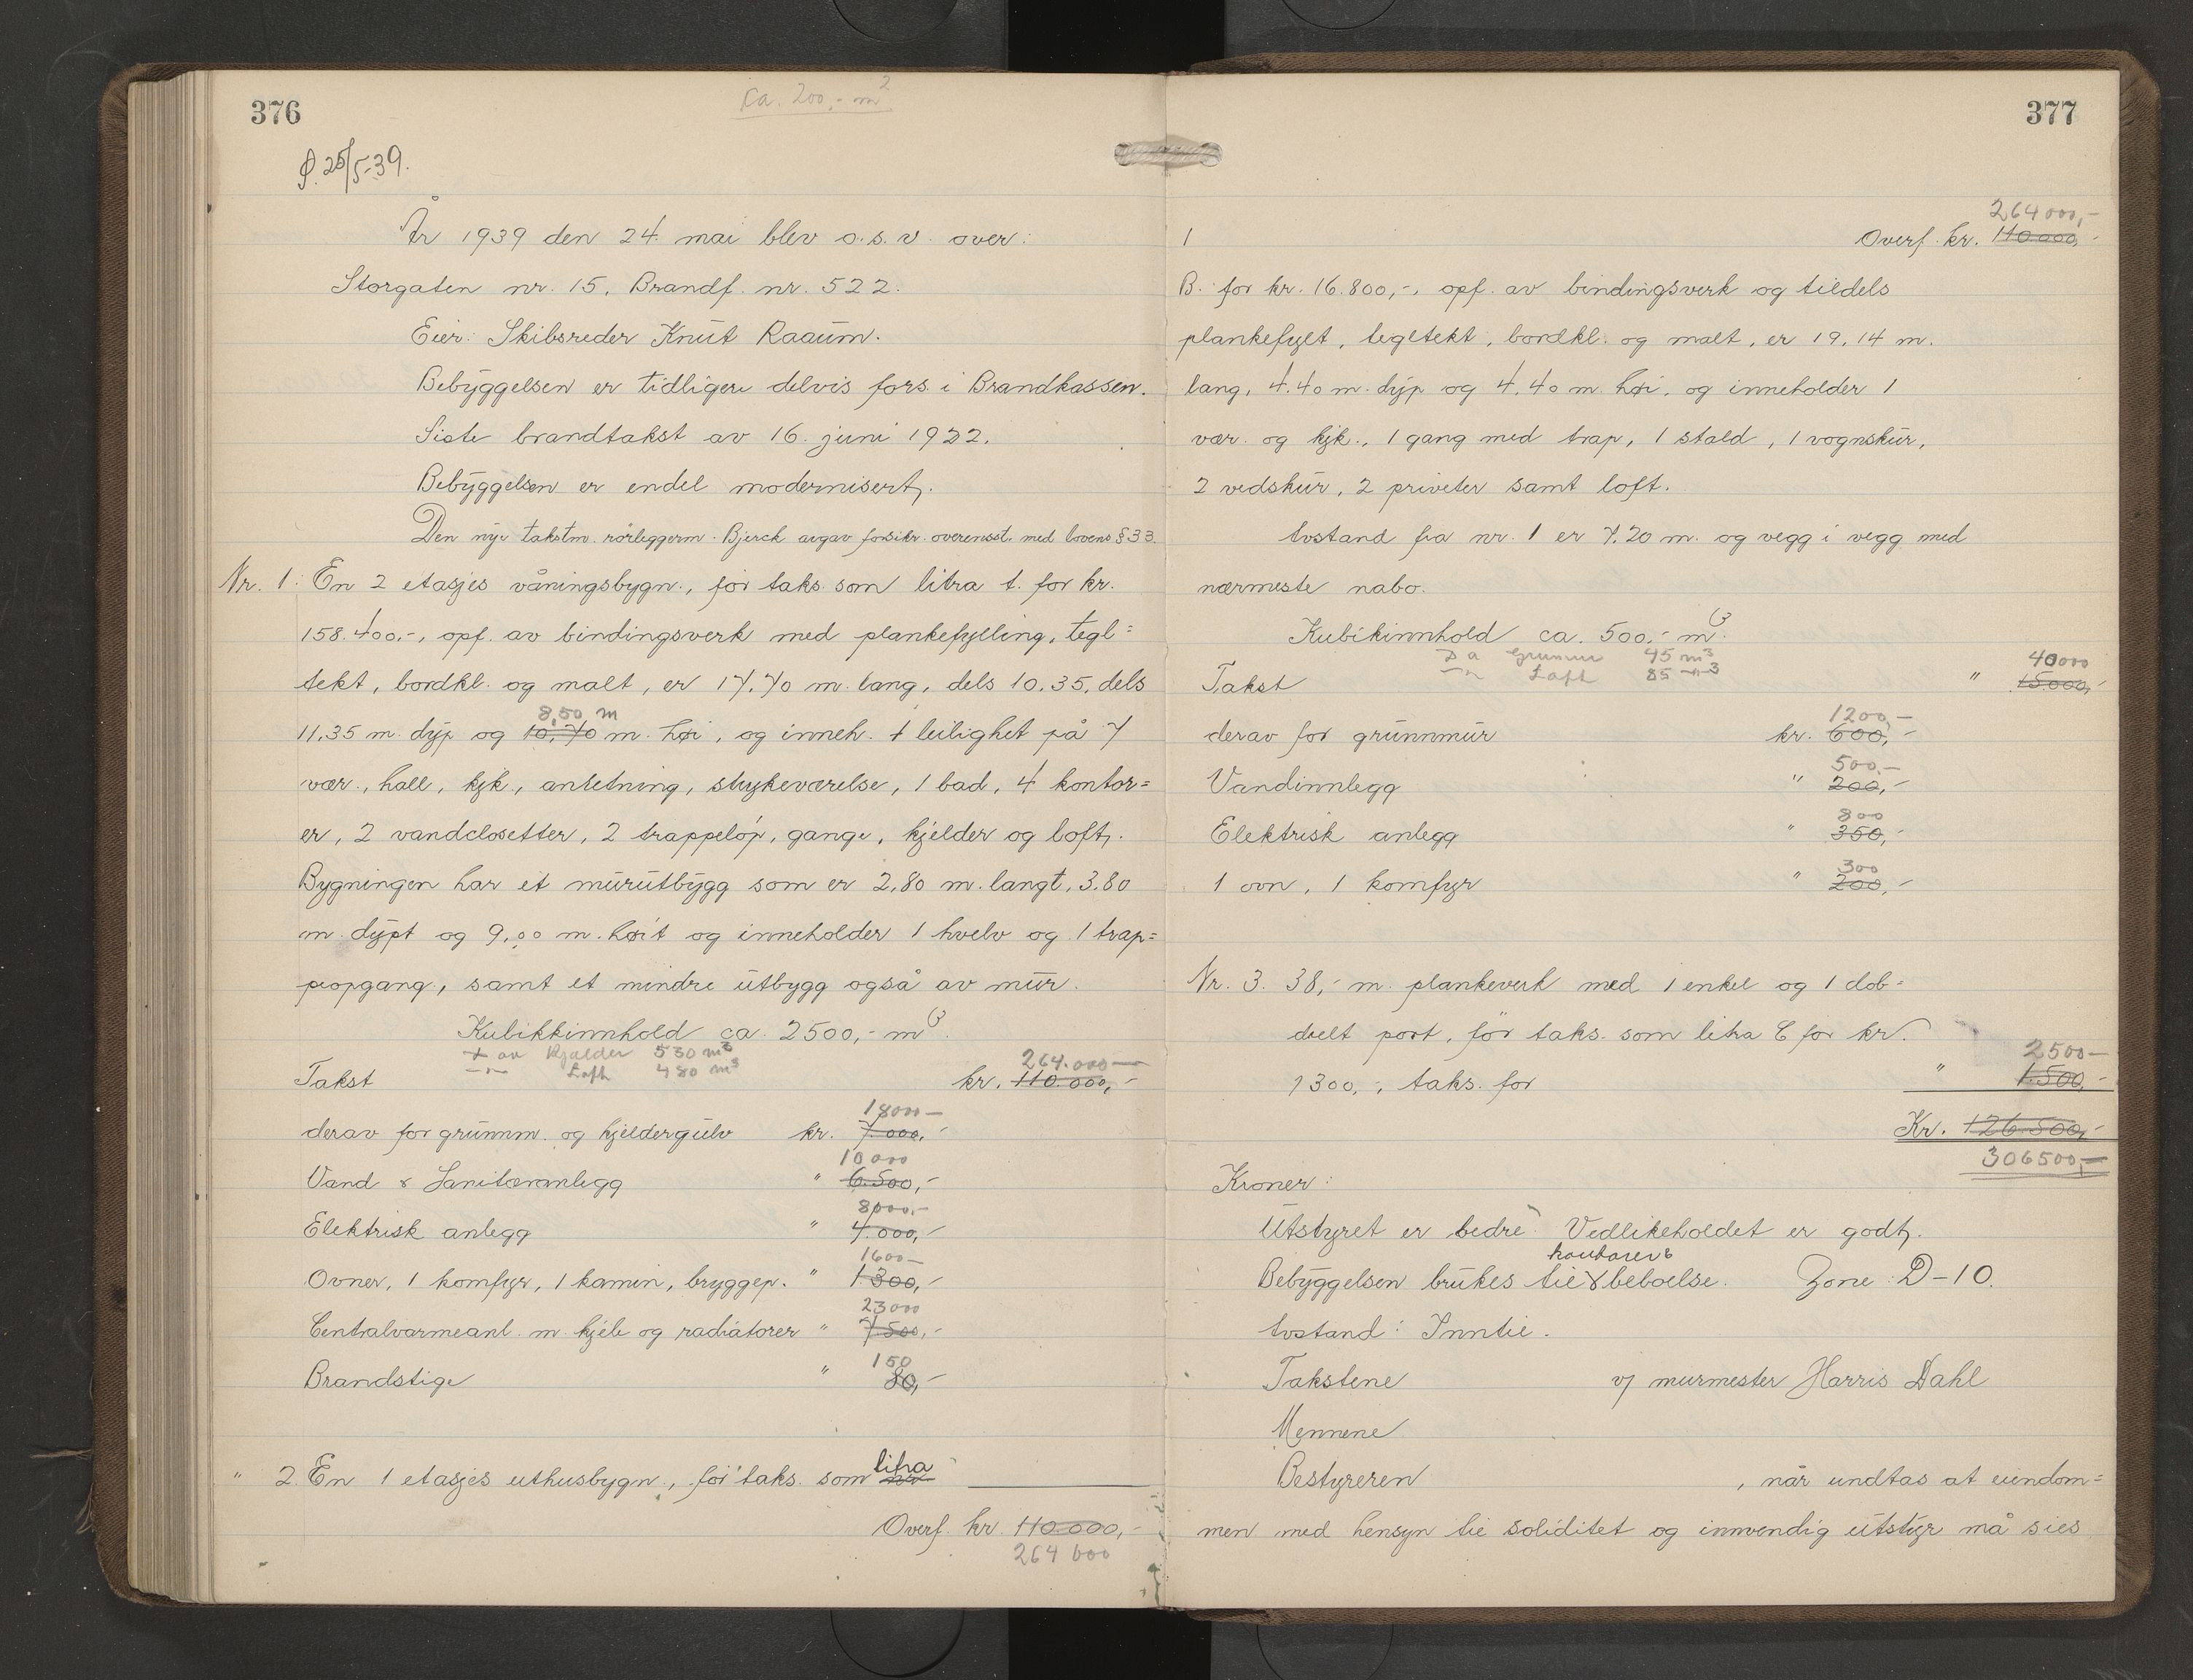 376
ca. 200,- m²
25/5-39.
År 1939 den 24. mai blev o.s.v. over:
Storgaten nr. 15, Brandf. nr. 522.
Eier: Skibsreder Knut Raaum.
Bebyggelsen er tidligere delvis fors. i Brandkassen.
Siste brandtakst av 16. juni 1922.
Bebyggelsen er endel modernisert.
Den nye takstm. rørleggerm. Bjerck avgav forsikr. overensst. med lovens § 33.
Nr. 1. En 2 etasjes våningsbygn., før taks. som litra A. for kr.
158.400,-, opf. av bindingsverk med plankefylling, tegl=
tekt, bordkl. og malt, er 17.70 m. lang, dels 10.35, dels
8,50 m
11.35 m. dyp og 10,70 m. høi, og inneh. 1 leilighet på 7
vær., hall, kjk., anretning, strykeværelse, 1 bad, 4 kontor=
er, 2 vandclosetter, 2 trappeløp, gange, kjelder og loft.
Bygningen har et murutbygg som er 2,80 m. langt, 3.80
m. dypt og 9,00 m. høit og inneholder 1 hvelv og 1 trap=
peopgang, samt et mindre utbygg også av mur.
Kubikkinnhold ca. 2500,- m³.
+ av Kjælder 530 m³
-"- Loft 480 m³
264.000-
Takst kr. 110.000,-
18000-
derav for grunnm. og kjeldergulv kr. 7.000,-
10000
Vand & Sanitæranlegg " 6.500,-
8000,-
Elektrisk anlegg " 4.000,-
1600-
Ovner, 1 komfyr, 1 kamin, bryggep. " 1300,-
23000
Centralvarmeanl. m. kjele og radiatorer " 7.500,-
150
Brandstige " 80,-
litra
" 2. En 1 etasjes uthusbygn., før taks. som
Overf. kr. 110.000,-
264 000
377
264000,-
1 Overf. kr. 110.000,-
B. for kr. 16.800,-, opf. av bindingsverk og tildels
plankefylt, tegltekt, bordkl. og malt, er 19,14 m.
lang, 4.40 m. dyp og 4.40 m. høi, og inneholder 1
vær. og kjk., 1 gang med trap, 1 stald, 1 vognskur,
2 vedskur, 2 priveter samt loft.
Avstand fra nr. 1 er 7.20 m. og vegg i vegg med
nærmeste nabo.
Kubikinnhold ca. 500,- m³.
Grunnmur 45 m³
-"- Loft 85 -"-³
40000
Takst " 15.000,-
1200,-
derav for grunnmur kr. 600,-
500,-
Vandinnlegg " 200,-
800
Elektrisk anlegg " 350,-
300
1 ovn, 1 komfyr " 200,-
Nr. 3. 38,- m. plankeverk med 1 enkel og 1 dob=
belt port, før taks. som litra C for kr.
2500-
1300,-, taks. for " 1.500,-
Kr. 126.500,-
306500,-
Kroner:
Utstyret er bedre. Vedlikeholdet er godt.
kontorer &
Bebyggelsen brukes til beboelse. Zone: D-10.
Avstand: Inntil.
Takstene v/ murmester Harris Dahl
Mennene
Bestyreren , når undtas at eiendom=
men med hensyn til soliditet og innvendig utstyr må sies